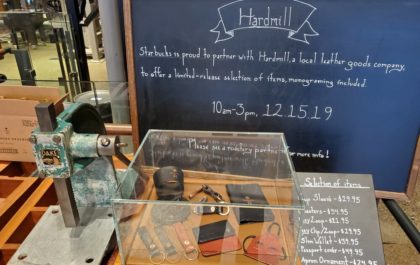 Hardmill
Starbucks is proud to partner with Hardmill, a local leather goods company,
to offer a limited-release selection of items, monograming included.
10am-3pm, 12.15.19
Please see a roastery partner for more info!
Selection of items
Sleeve - $29.95
Coasters - $44.95
Key Loop - $24.95
Key Clip/Loop - $29.95
Slim Wallet - $39.95
Passport case - $49.95
Apron Ornament - $24.95